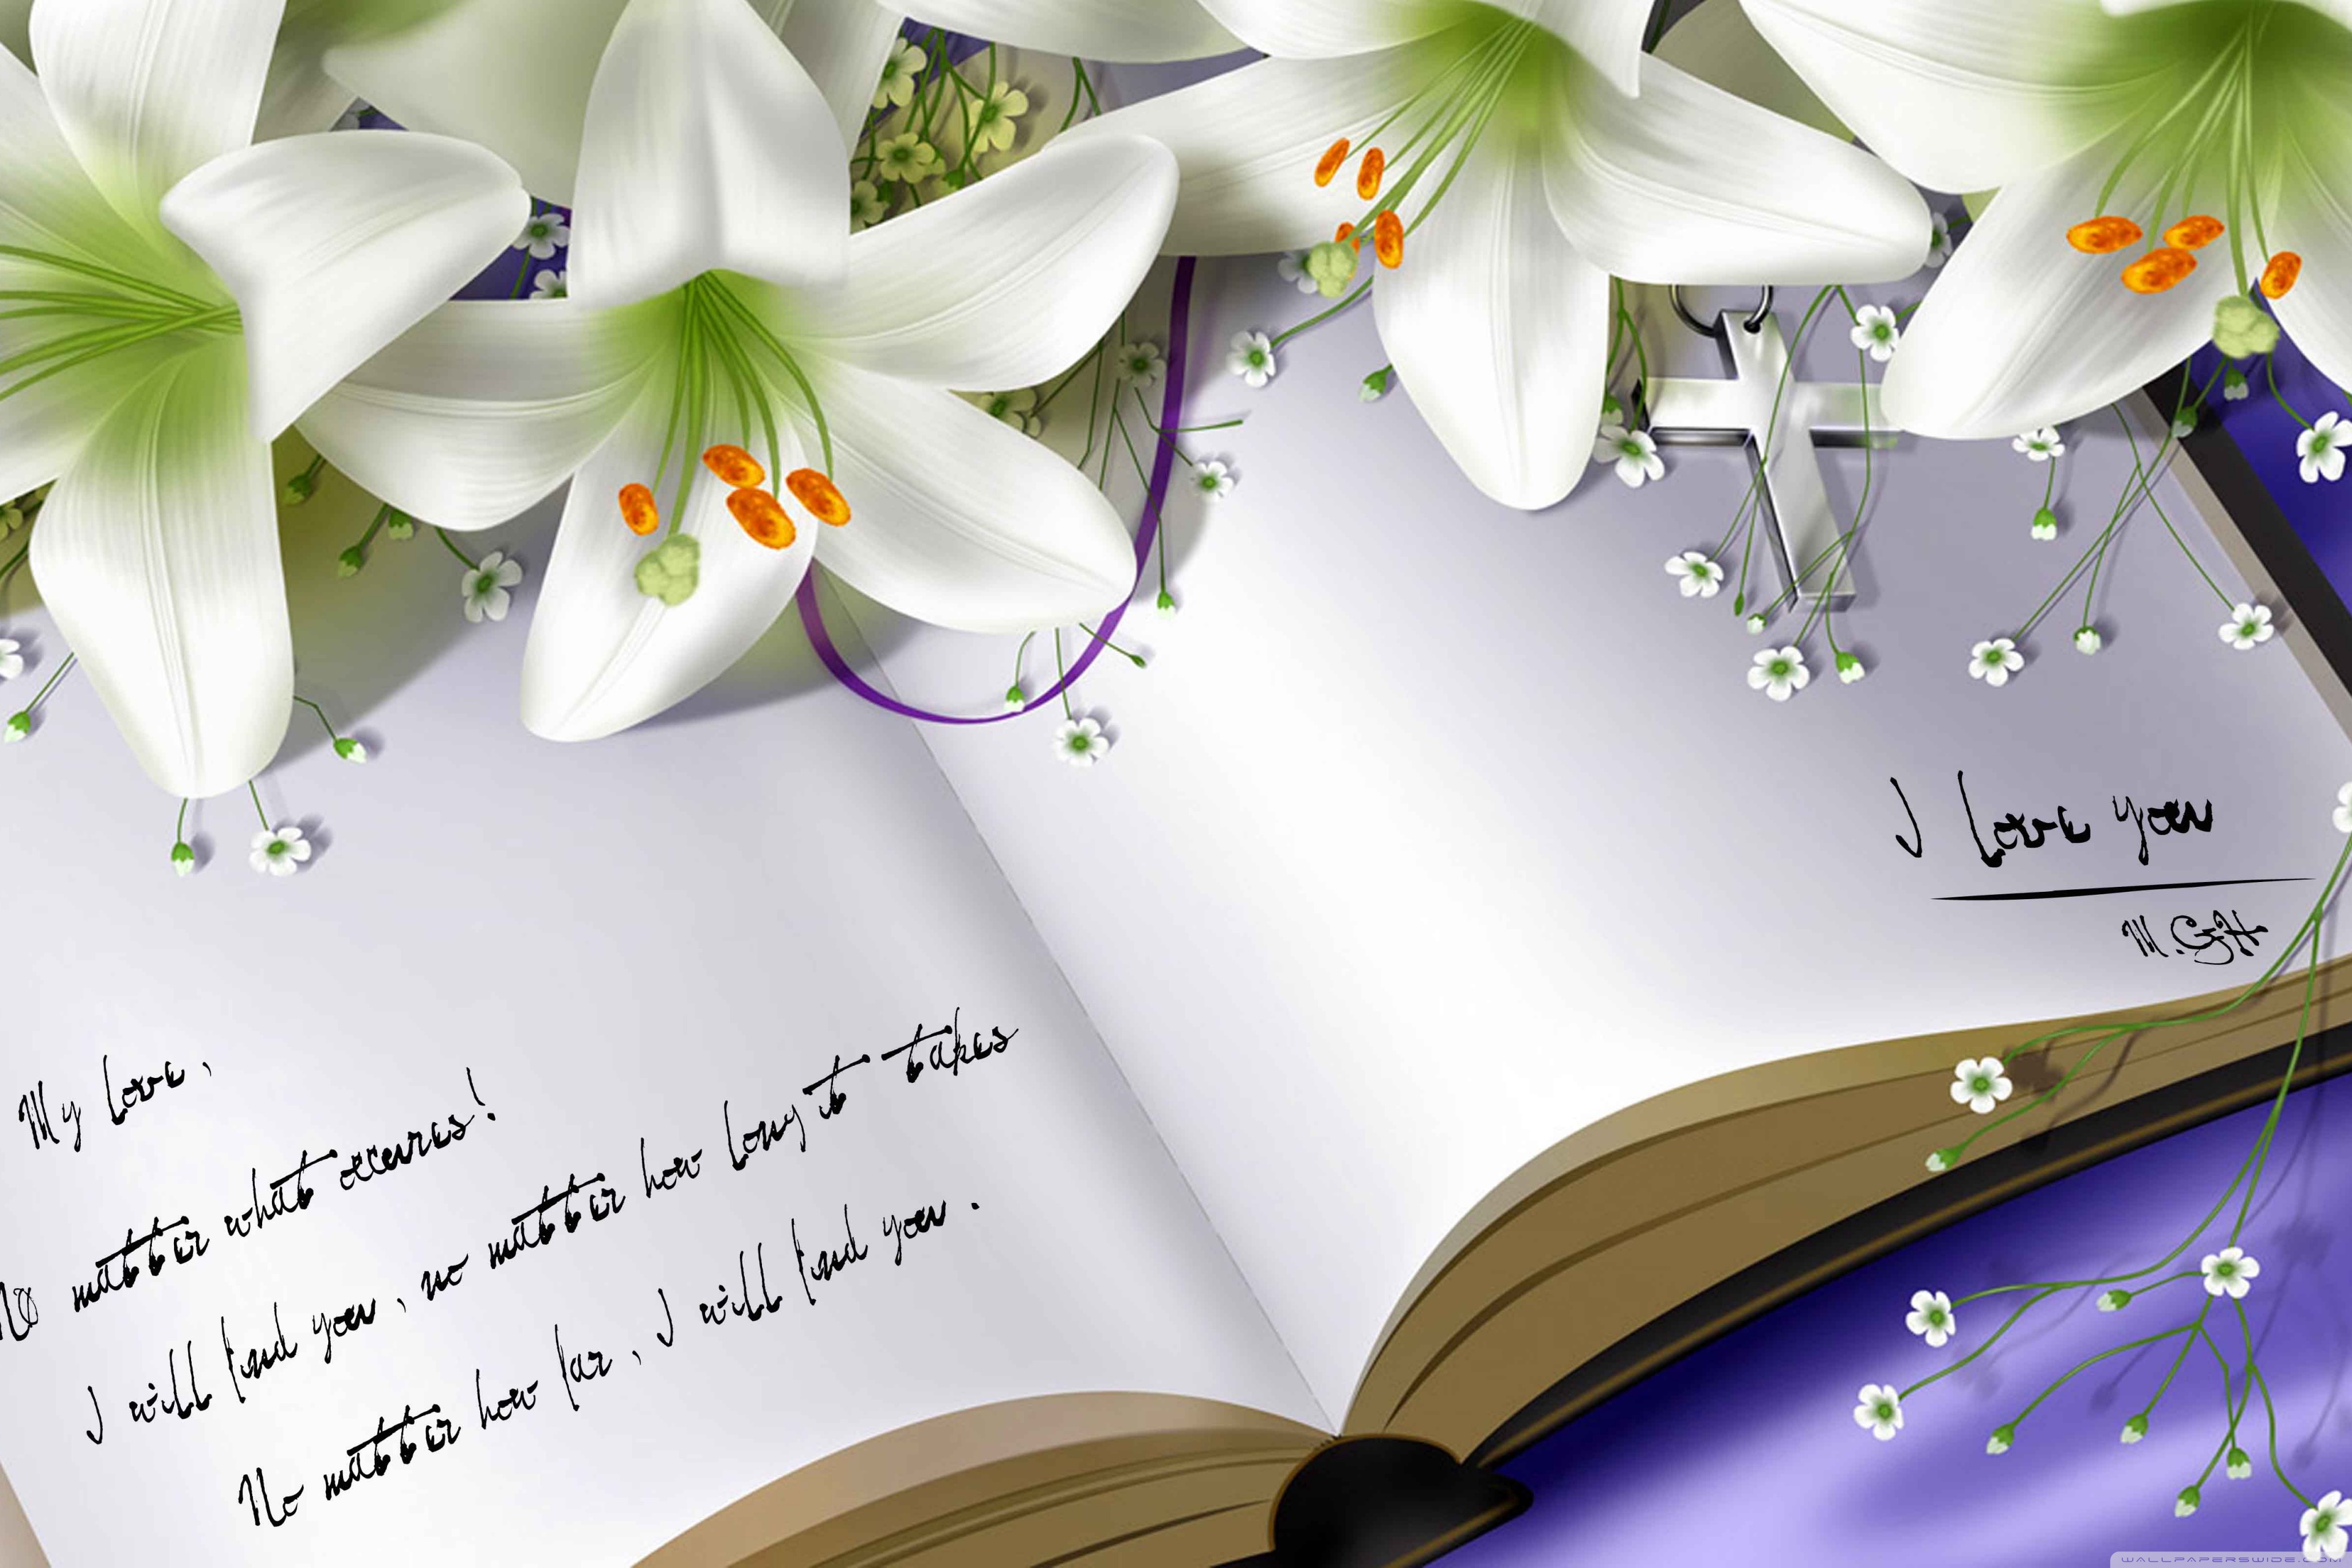 My Love,
No matter what occures!
I will find you, no matter how long it takes
No matter how far, I will find you.
I Love you
M.GH
WALLPAPERSWIDE.COM